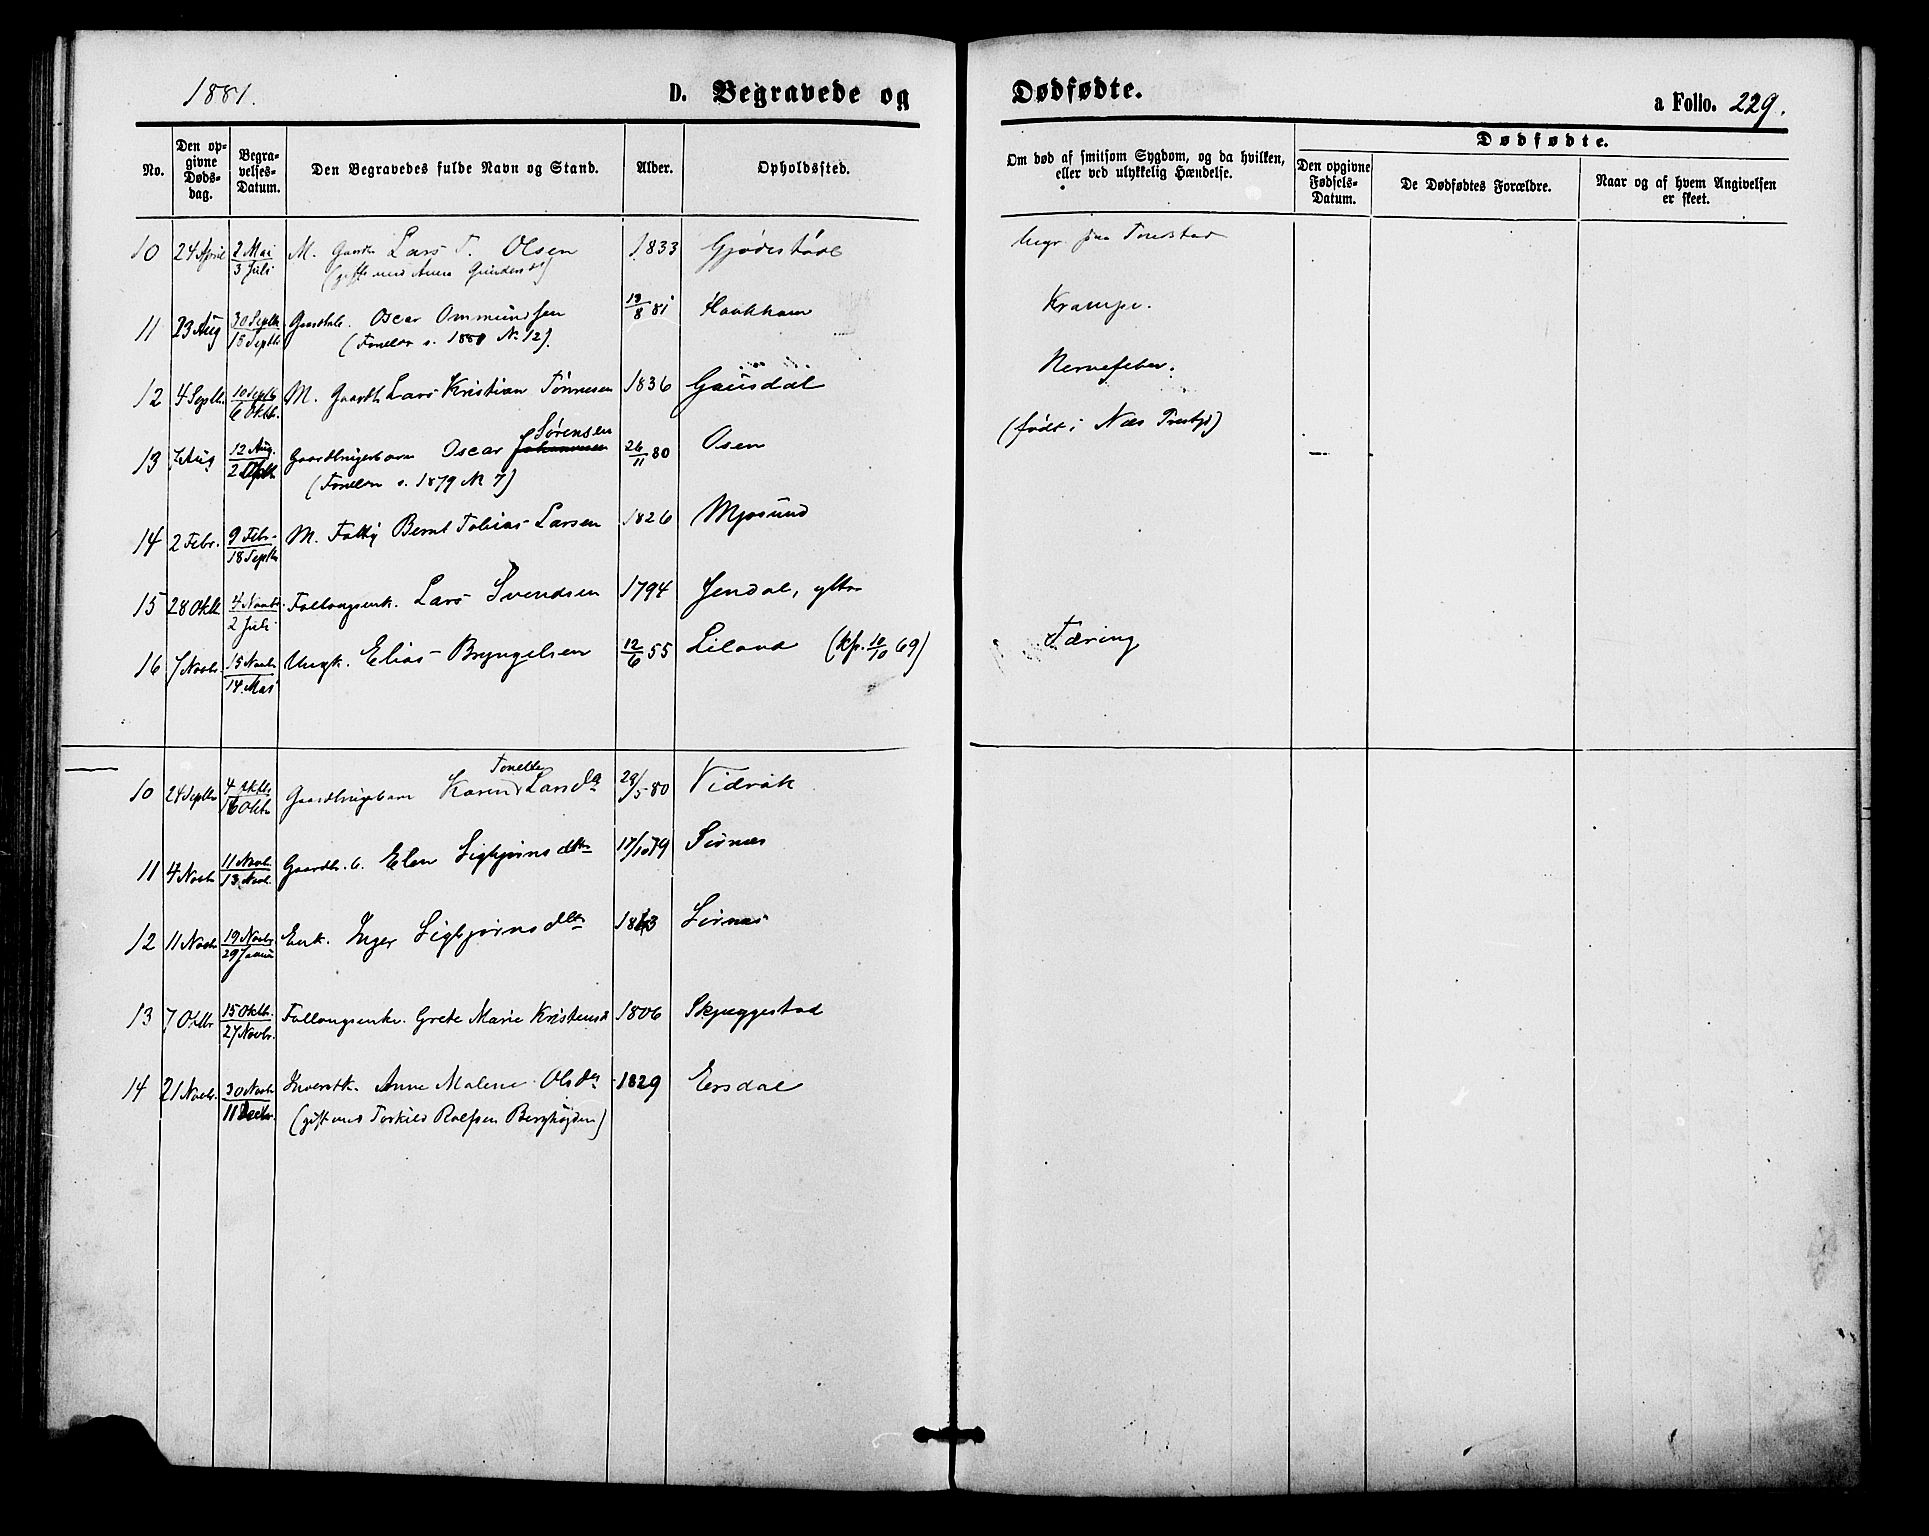 1881.
D. Begravede og Dødfødte.
a Folio. 229.
No.
Den opgivne Dødsdag.
Begravelses-Datum.
Den Begravedes fulde Navn og Stand.
Alder.
Opholdssted.
Om død af smitsom Sygdom, og da hvilken, eller ved ulykkelig Hændelse.
Dødfødte.
Den opgivne Fødsels-Datum.
De Dødfødtes Forældre.
Naar og af hvem Angivelsen er skeet.
10 24 April 2 Mai / 3 Juli M. Lars T. Olsen 1833 Begr. paa
(gift med Anne
11 23 Aug 30 Septb / 18 Septb Oscar Ommundsen 19/8 81 Haukhom Krampe.
(Forældre s. 1880 No 12).
12 4 Septb. 10 Septb / 6 Oktb. M. Gaardb. Lars Kristian Tönnesen 1836 Gausdal Nervefeber.
(født i Næs Præstgj)
13 7 Aug 12 Aug. / 2 Gaardbrugerbarn Oscar Johannesen Sørensen 26/11 80 Osen
(Forældre s. 1879 N 7)
14 2 Febr. 9 Febr. / 18 Septb M. Fattig Bernt Tobias Larsen 1826 Mjosund
15 28 Oktb 4 Novbr. / 2 Juli Follougsenk. Lars Svendsen 1794 Jendal, ytter
16 7 Novbr. 15 Novbr / 14 Mai Ungk. Elias Bryngelsen 12/6 55 Liland (kf. 10/10 69) Tæring
10 24 Septbr 4 Oktb / 16 Oktb Gaardbrugerbarn Karen Tonette Larsda 29/5 80 Vidråk
11 4 Novbr 11 Novb. / 13 Novb. Gaardbr. b. Elen Sigbjørnsdtr 17/10 79 Sirnæs
12 11 Novbr 19 Novbr / 29 Januar Enk. Inger Sigbjørnsdtr Sirnæs
13 7 Oktbr 15 Oktb. / 27 Novbr. Follougsenke. Grete Marie Kristensd 1806 Skjeggestad
14 21 Novbr. 30 Novbr / 11 Decbr. Inderstk. Anne Malene Olsda 1829 Eersdal
(gift med Torkild Rolfsen Berghøjden)